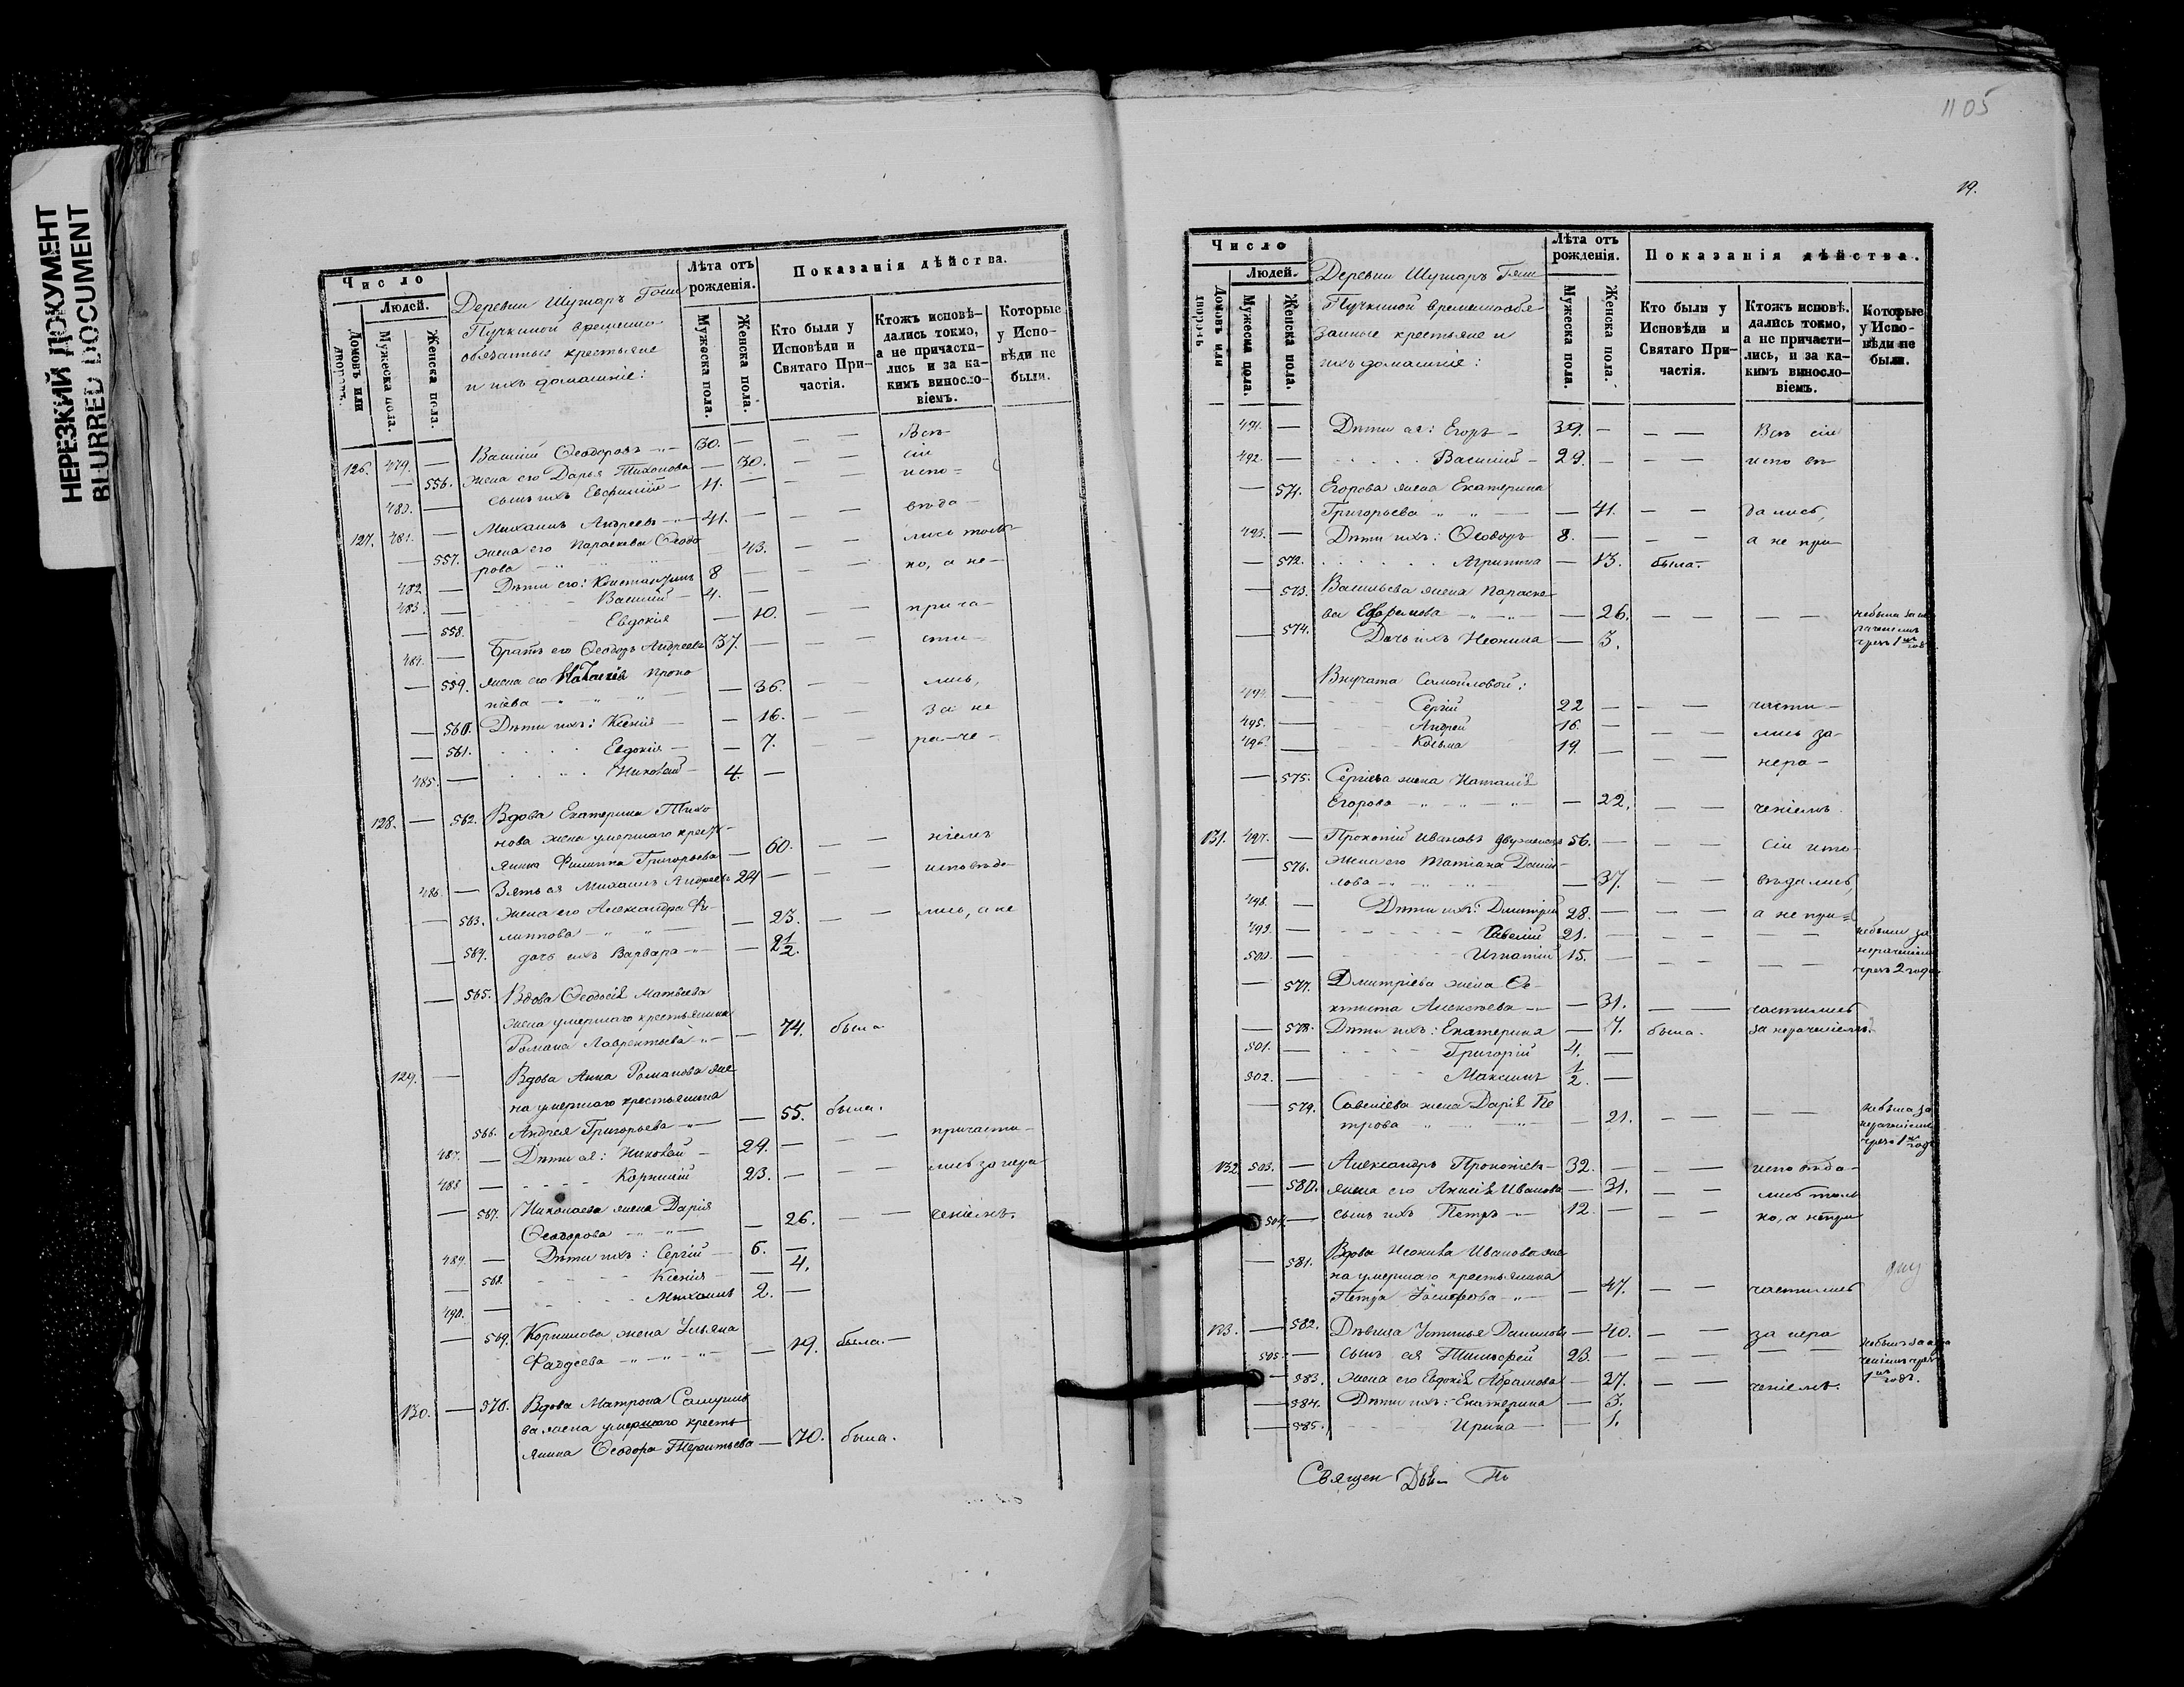 НЕРЕЗКИЙ ДОКУМЕНТ
BLURRED DOCUMENT
Число
Людей.
Домовъ или дворовъ.
Мужеска пола.
Женска пола.
Деревни Шугмаръ Гоми
Пучкиной временно
обязанные крестьяне
и ихъ домашніе:
Лѣта отъ рожденія.
Мужеска пола.
Женска пола.
Показанія дѣйства.
Кто были у Исповѣди и Святаго Причастія.
Ктожъ исповѣдались токмо, а не причастились и за какимъ винословіемъ.
Которые у Исповѣди не были.
126. 479. — Василій Ѳеодоровъ 30. — Всѣ
— 556. жена его Дарья Тихонова — 30. сіи
480. — сынъ ихъ Евфимій 11. — испо=
127. 481. — Михаилъ Андреевъ 41. — вѣда
— 557. жена его Параскева Ѳеодо
рова — 43. лись толь
482 — Дѣти его: Константинъ 8 — ко, а не
483. — Василій 4. —
— 558. Евдокія — 10. прича
484. — Братъ его Ѳеодоръ Андреевъ 37. — сти
— 559. жена его Наталія Проко
піева — 36. лись,
— 560. Дѣти ихъ: Ксенія — 16. за не
— 561. Евдокія — 7. ра-че-
485. — Николай 4. —
128. — 562. Вдова Екатерина Тихо
нова жена умершаго крестъ
янина Филиппа Григорьева — 60. ніемъ
486. — Зять ея Михаилъ Андреевъ 24 — исповѣда
— 563. жена его Александра Фи
липпова — 23. лись, а не
— 564. дочь ихъ Варвара — 2 1/2.
— 565. Вдова Ѳеодосія Матвеева
жена умершаго крестьянина
Романа Лаврентьева — 74. была.
129. — Вдова Анна Романова же
на умершаго крестьянина
566. Андрея Григорьева — 55. была.
487. — Дѣти ея: Николай 29. — причасти
488 — Корнилій 23. — лись за нера
— 567. Николаева жена Дарія
Ѳеодорова — 26. ченіемъ.
489. — Дѣти ихъ: Сергій 6. —
— 568. Ксенія — 4.
490. — Михаилъ 2. —
— 569. Корнилова жена Ульяна
Фаддеева — 19. была.
130. — 570. Вдова Матрона Самуило
ва жена умершаго кресть
янина Ѳеодора Терентьева — 70. была.
1105
19.
Число
Людей.
Домовъ или дворовъ.
Мужеска пола.
Женска пола.
Деревни Шугмаръ Гоми
Пучкиной временнообя
занные крестьяне и
ихъ домашніе:
Лѣта отъ рожденія.
Мужеска пола.
Женска пола.
Показанія дѣйства.
Кто были у Исповѣди и Святаго Причастія.
Ктожъ исповѣдались токмо, а не причастились, и за какимъ винословіемъ.
Которые у Исповѣди не были.
491. — Дѣти ея: Егоръ 39. — Всѣ сіи
492. — Василій 29. — испо вѣ
— 571. Егорова жена Екатерина
Григорьева — 41. дались,
493. — Дѣти ихъ: Ѳеодоръ 8. — а не при
— 572. Агрипина — 13. была.
— 573. Васильева жена Параске
ва Ефремова — 26. небыла за не
— 574. Дочь ихъ Неонила — 3. раченіемъ
чрезъ 1 годъ
Внучата Самойловой:
494. — Сергій 22 — части
495. — Андрей 16. — лись за
496. — Косьма 19. — нера
— 575. Сергіева жена Наталія
Егорова — 22. ченіемъ.
131. 497. — Прокопій Ивановъ двужене 56. — сіи испо
— 576. жена его Татіана Дании
лова — 37. вѣдались,
498. — Дѣти ихъ: Дмитрій 28. — а не при=
499. — Савелій 21. — небыли за
500. — Игнатій 15. — нераченіемъ
чрезъ 2 года
— 577. Дмитріева жена Ѳе
ктиста Алексѣева — 31. частились
— 578. Дѣти ихъ: Екатерина — 7. была. за нераченіемъ.
501. — Григорій 4. —
502. — Максимъ 1/2. —
— 579. Савеліева жена Дарія Пе
трова — 21. небыла за
нераченіемъ
чрезъ 1 годъ
132. 503. — Александръ Прокопіевъ 32. — исповѣда
— 580. жена его Анисія Иванова — 31. лись толь
504. — сынъ ихъ Петръ 12. — ко, а непри
— 581. Вдова Неонила Иванова же
на умершаго крестьянина
Петра Іосифова — 47. частились
133. — 582. Дѣвица Устинья Данилова — 40. за нера
505. — сынъ ея Тимофей 23. — небылъ за нера
ченіемъ чрезъ
1 годъ.
— 583. жена его Евдокія Абрамова — 27. ченіемъ.
— 584. Дѣти ихъ: Екатерина — 3.
— 585. Ирина — 1.
Священ